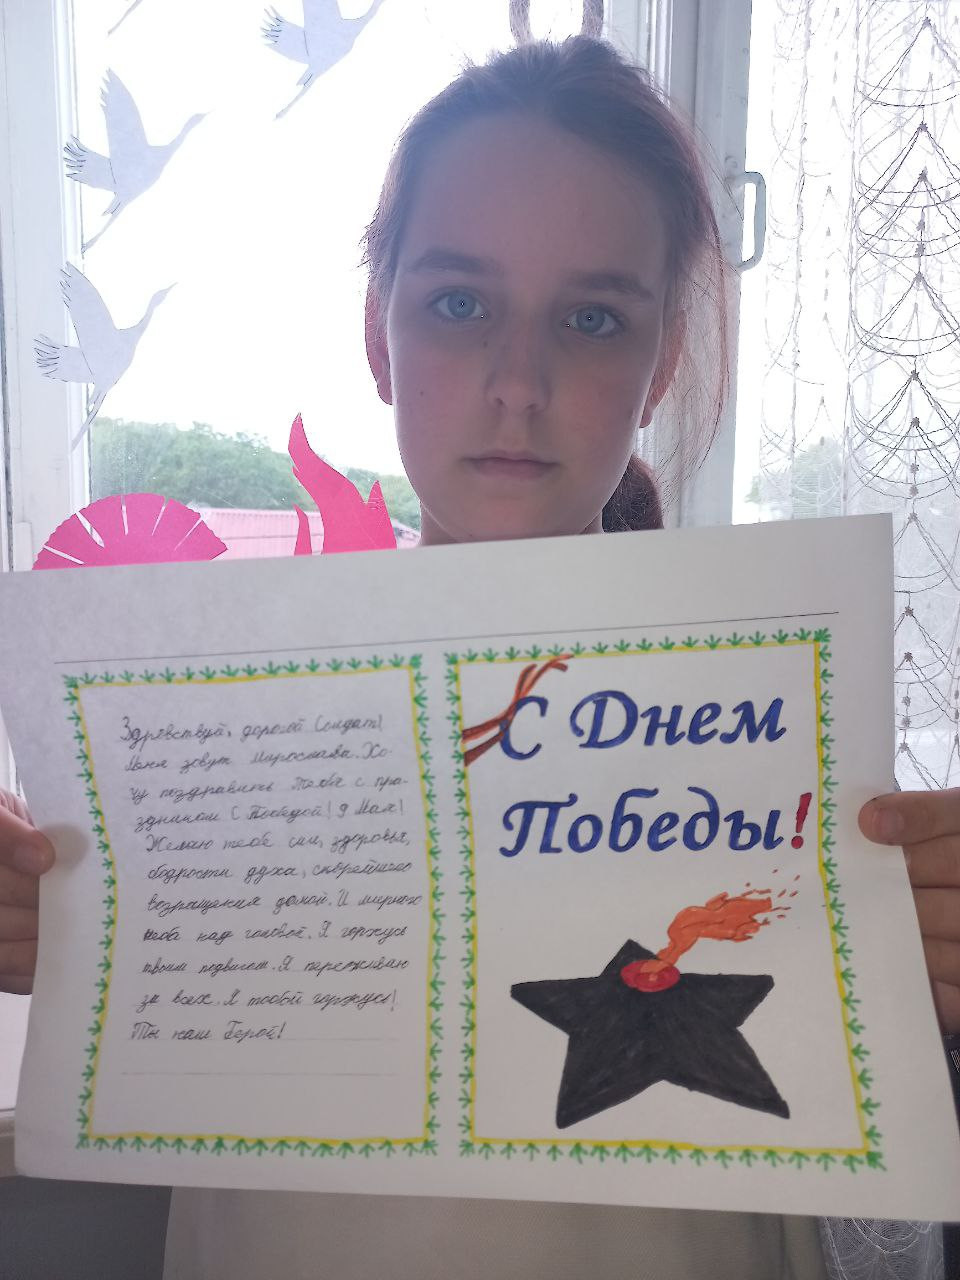 Здрявствуй, дорогой Солдат!
Меня зовут Мирослава. Хо-
чу поздравить Тебя с пра-
здником С Победой! 9 Мая!
Желаю тебе сил, здоровья,
бодрости духа, скорейшего
возращения домой. И мирного
неба над головой. Я горжусь
твоим подвигом. Я переживаю
за всех. Я тобой горжусь!
Ты наш Герой!
С Днем
Победы!